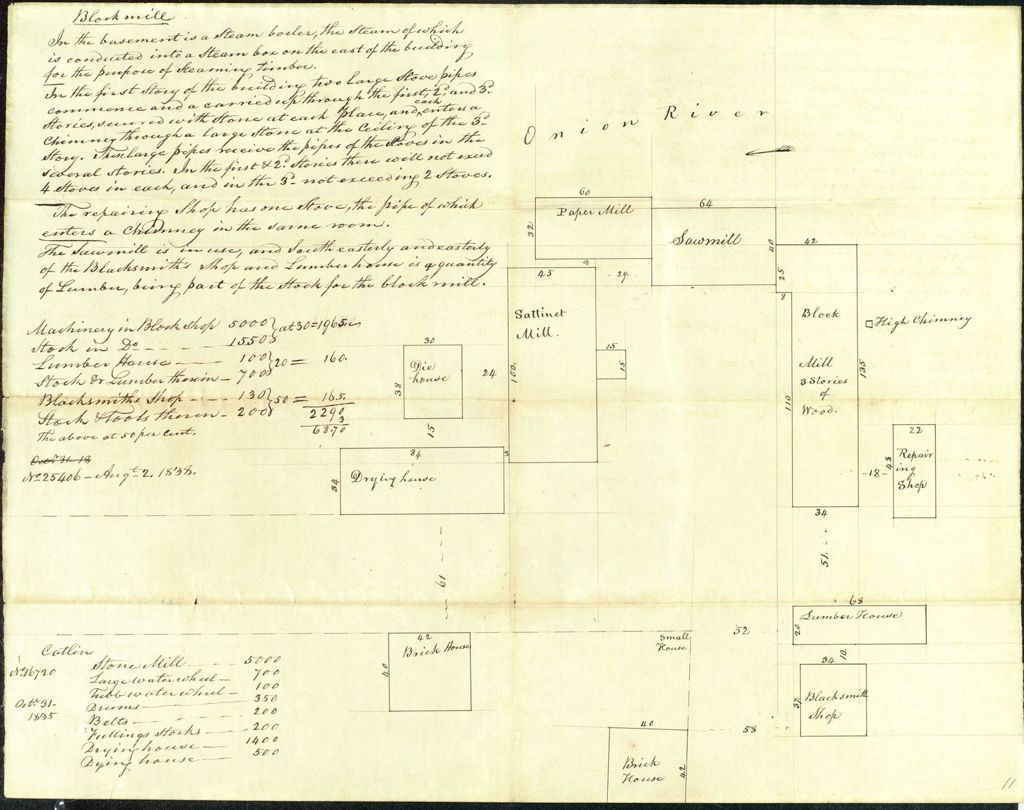 Block mill
In the basement is a Steam boiler, the Steam of which
is conducted into a Steam box on the east of the building
for the purpose of Steaming timber.
In the first Story of the building two large Stove pipes
commence and a carried up through the first, 2d. and 3d.
Stories, secured with Stone at each Place, and each enters a
Chimney through a large Stone at the Ceiling of the 3d.
Story. These large pipes receive the pipes of the Stoves in the
several stories. In the first & 2d. Stories there will not exeed
4 Stoves in each, and in the 3d. not exceeding 2 Stoves.
The repairing Shop has one Stove, the pipe of which
enters a Chimney in the same room.
The Sawmill is in use, and South easterly and easterly
of the Blacksmith's Shop and Lumber house is a quantity
of Lumber, being part of the Stock for the block mill.
Machinery in Block Shop 5000 } at 30 = 1965.
Stock in Do — 1550
Lumber House — 100 } 20 = 160.
Stock Lumber therein — 700
Blacksmiths Shop — 130 } 50 = 165.
Stock & Tools thereon — 200
2290
3
6870
The above at 50 per cent.
Oct. 31 18
No. 25406 — Augt. 2. 1838.
Catlin
No. 16720
Octr. 31-
1835
Stone Mill — 5000
Large water wheel — 700
Tubb water wheel — 100
Drums — 350
Belts — 200
Fullings Stocks — 200
Drying house — 1400
Dying house — 500
Onion River
60
Paper Mill
32
64
Sawmill
40
4
29.
45
Sattinet
Mill.
100.
15
15
24
30
Die
house
38
15
84
3
Drying house
34
61
42
25
8
Block
Mill
3 Stories
of
Wood.
110
135
34
High Chimney
22
Repair
ing
Shop
48
18
51.
68
Lumber House
20
10.
34
Blacksmith
Shop
37
52
Small
House
58
42
Brick House
40
40
Brick
House
42
11